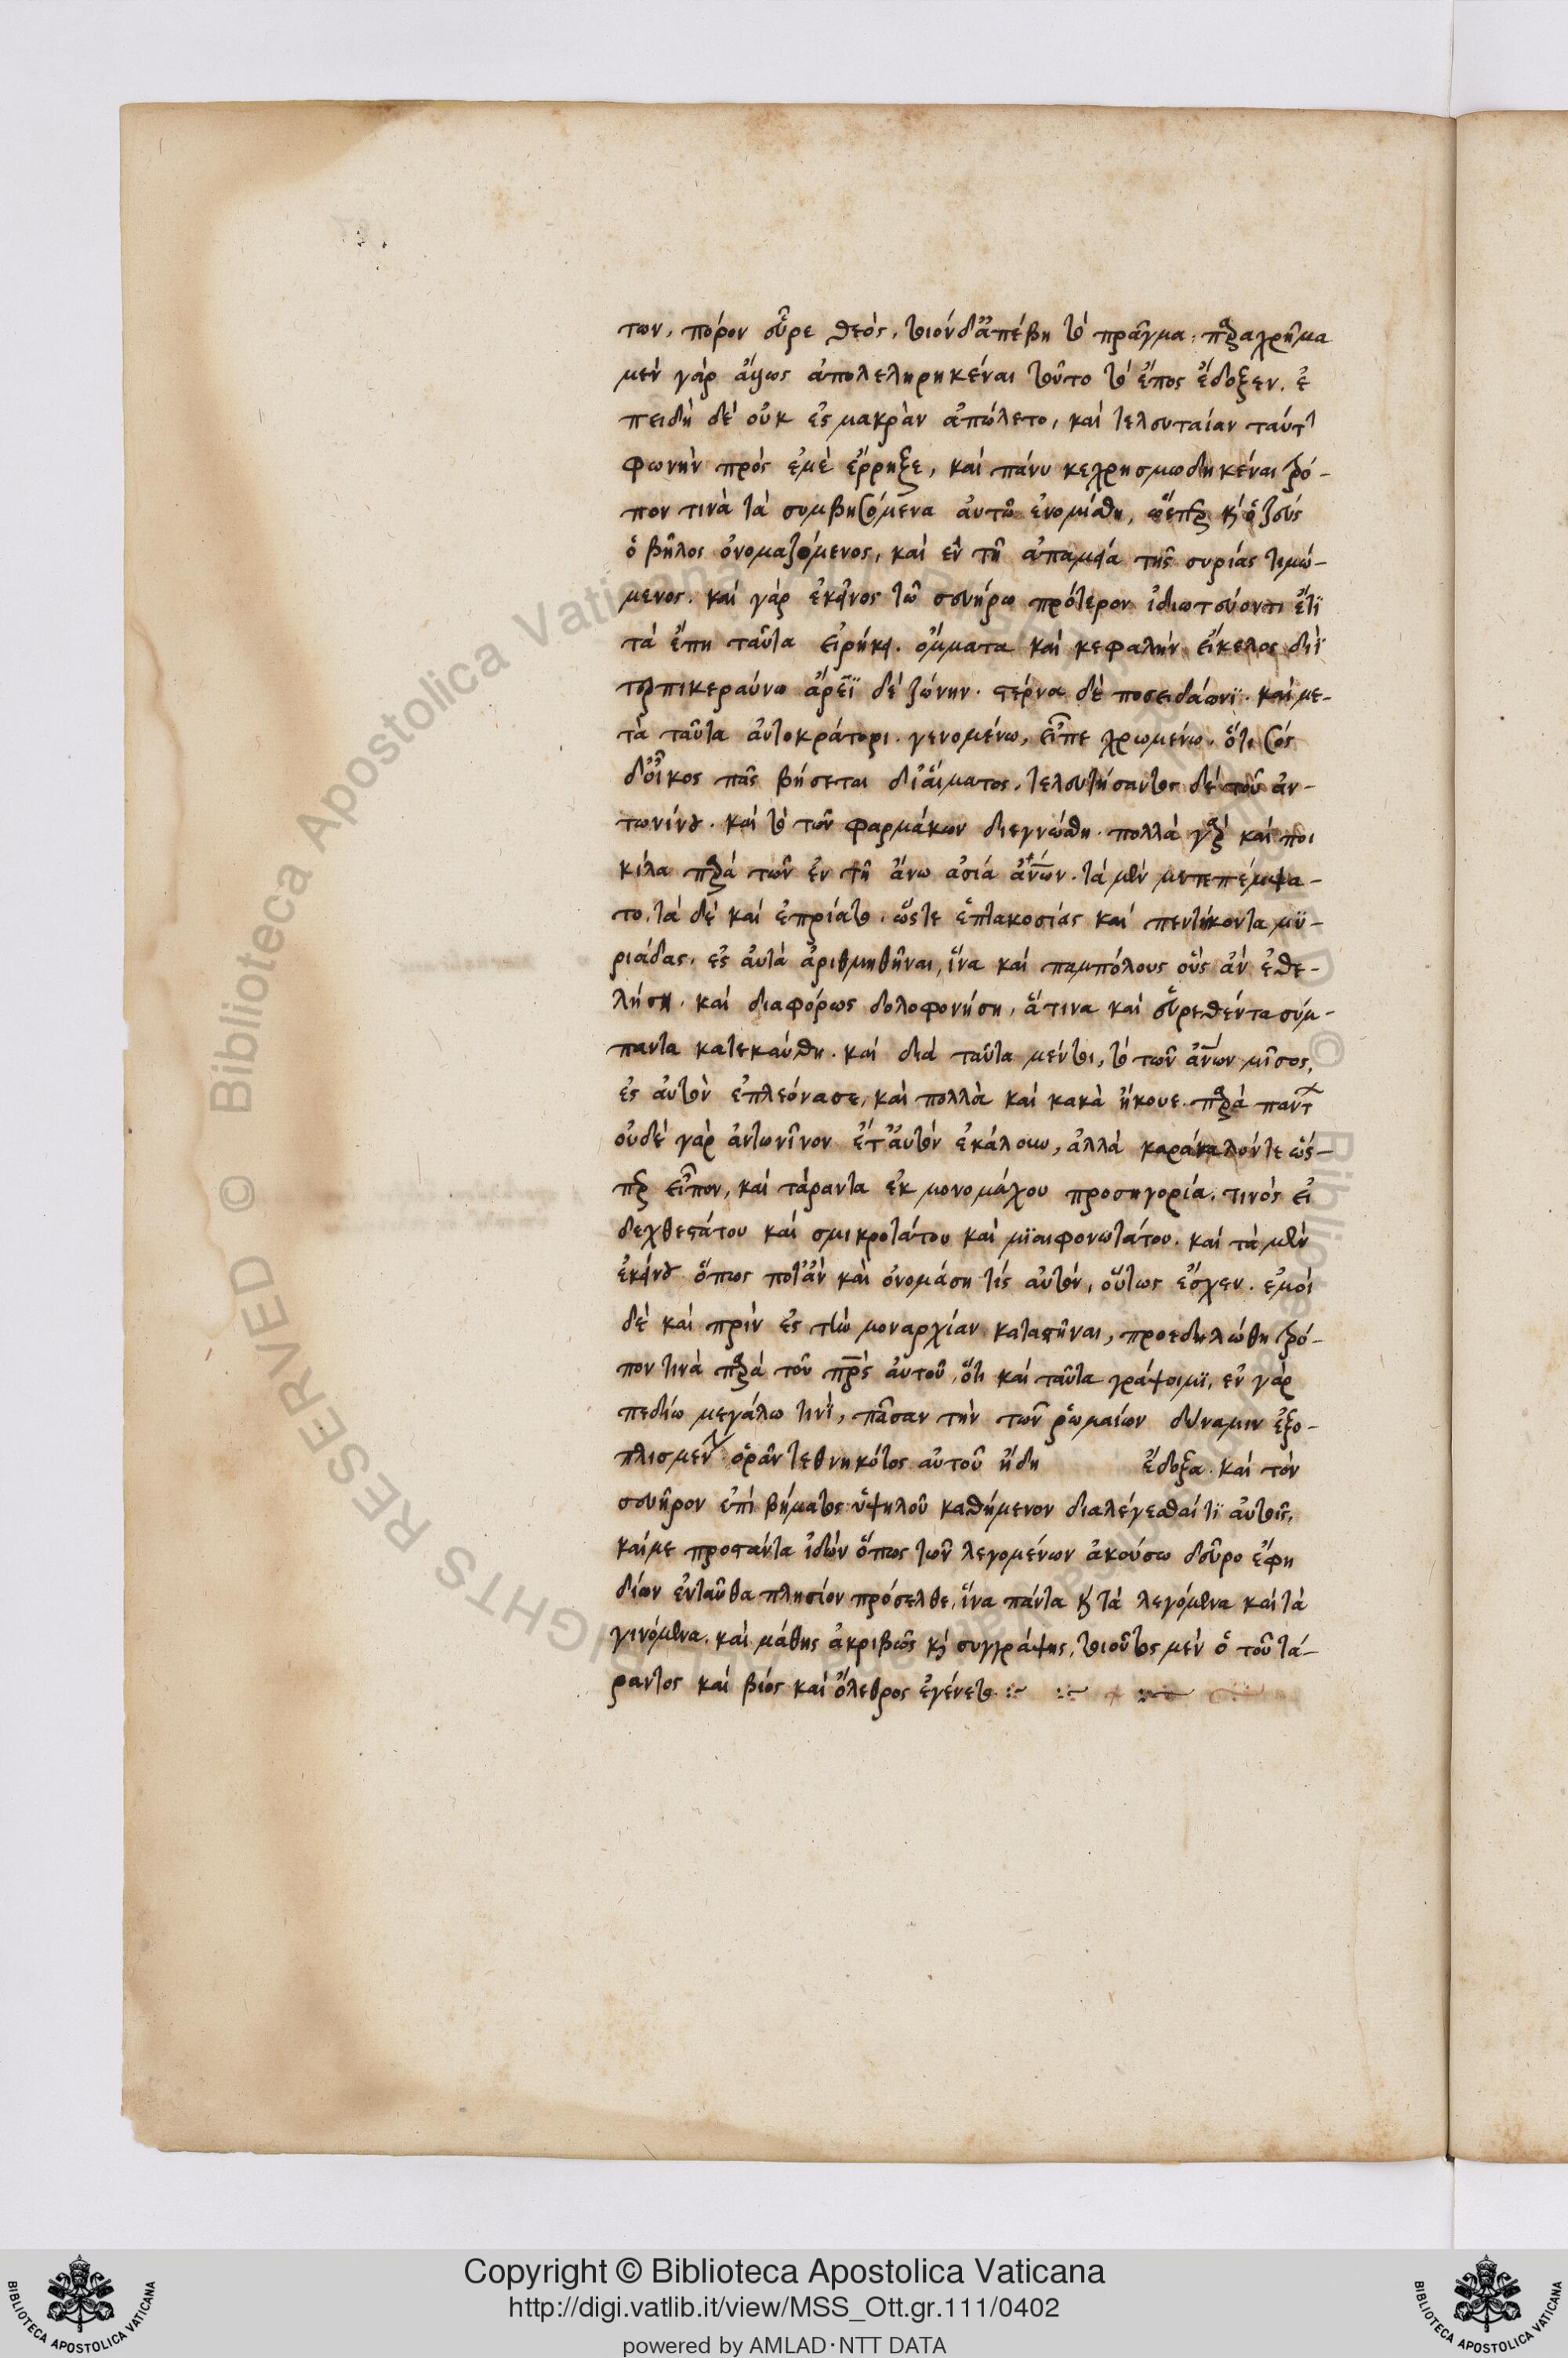 των, πόρον εὗρε θεός, τοιόνδ' ἀπέβη τὸ πρᾶγμα. παραχρῆμα
μὲν γὰρ ἄλλως ἀπολεληρηκέναι τοῦτο τὸ ἔπος ἔδοξεν. ἐ
πειδὴ δὲ οὐκ ἐς μακρὰν ἀπώλετο, καὶ τελευταίαν ταύτην
φωνὴν πρὸς ἐμὲ ἔρρηξε, καὶ πάνυ κεχρησμωδηκέναι τρό-
πον τινὰ τὰ συμβησόμενα αὐτῶ ἐνομίσθη, ὥσπερ καὶ ὁ ζεὺς
ὁ βῆλος ὀνομαζόμενος, καὶ ἐν τῆ ἀπαμεία τῆς συρίας τιμώ-
μενος. καὶ γὰρ ἐκεῖνος τῶ σευήρω πρότερον ἰδιωτεύοντι ἔτϊ
τὰ ἔπη ταῦτα εἰρήκει. ὄμματα καὶ κεφαλὴν εἴκελος διῒ
τερπικεραύνω ἄρεϊ δὲ ζώνην. στέρνα δὲ ποσειδάωνϊ. καὶ με-
τὰ ταῦτα αὐτοκράτορι. γενομένω, εἶπε χρωμένω. ὅτι σὸς
δ' οἶκος πᾶς βήσεται δι' αἵματος. τελευτήσαντος δὲ τοῦ ἀν-
τωνίνου. καὶ τὸ τῶν φαρμάκων διεγνώσθη. πολλὰ γὰρ καὶ ποι
κίλα παρὰ τῶν ἐν τῆ ἄνω ἀσία ἀνων. τὰ μὲν μετεπέμψα-
το, τὰ δὲ καὶ ἐπρίατο. ὥστε ἑπτακοσίας καὶ πεντήκοντα μϋ-
ριάδας, ἐς αὐτὰ ἀριθμηθῆναι, ἵνα καὶ παμπόλους οὓς ἂν ἐθε-
λήση. καὶ διαφόρως δολοφονήση, ἅτινα καὶ εὑρεθέντα σύμ-
παντα κατεκαύθη. καὶ διὰ ταῦτα μέντοι, τὸ τῶν ἀνων μῖσος,
ἐς αὐτὸν ἐπλεόνασε, καὶ πολλὰ καὶ κακὰ ἤκουε παρὰ παντ
οὐδὲ γὰρ ἀντωνῖνον ἔτ' αὐτὸν ἐκάλουν, ἀλλὰ καράκαλόν τε ὥσ-
περ εἶπον, καὶ τάραντα ἐκ μονομάχου προσηγορία. τινὸς εἰ
δεχθεστάτου καὶ σμικροτάτου καὶ μϊαιφονωτάτου. καὶ τὰ μὲν
ἐκείνου ὅπως ποτ' ἂν καὶ ὀνομάση τὶς αὐτόν, οὕτως ἔσχεν. ἐμοὶ
δὲ καὶ πρὶν ἐς τὴν μοναρχίαν καταστῆναι, προεδηλώθη τρό-
πον τινὰ παρὰ τοῦ πρς αὐτοῦ, ὅτι καὶ ταῦτα γράψοιμϊ, ἐν γὰρ
πεδίω μεγάλω τινΐ, πᾶσαν τὴν τῶν ῥωμαίων δύναμιν ἐξο-
πλισμένην ὁρᾶν τεθνηκότος αὐτοῦ ἤδη ἔδοξα. καὶ τὸν
σευῆρον ἐπὶ βήματος ὑψηλοῦ καθήμενον διαλέγεσθαί τϊ αὐτοῖς,
καί με προστάντα ἰδὼν ὅπως τῶν λεγομένων ἀκούσω δεῦρο ἔφη
δίων ἐνταῦθα πλησίον πρόσελθε, ἵνα πάντα καὶ τὰ λεγόμενα καὶ τὰ
γινόμενα. καὶ μάθης ἀκριβῶς καὶ συγγράψης. τοιοῦτος μὲν ὁ τοῦ τά-
ραντος καὶ βίος καὶ ὄλεθρος ἐγένετο.
Copyright © Biblioteca Apostolica Vaticana
http://digi.vatlib.it/view/MSS_Ott.gr.111/0402
powered by AMLAD·NTT DATA